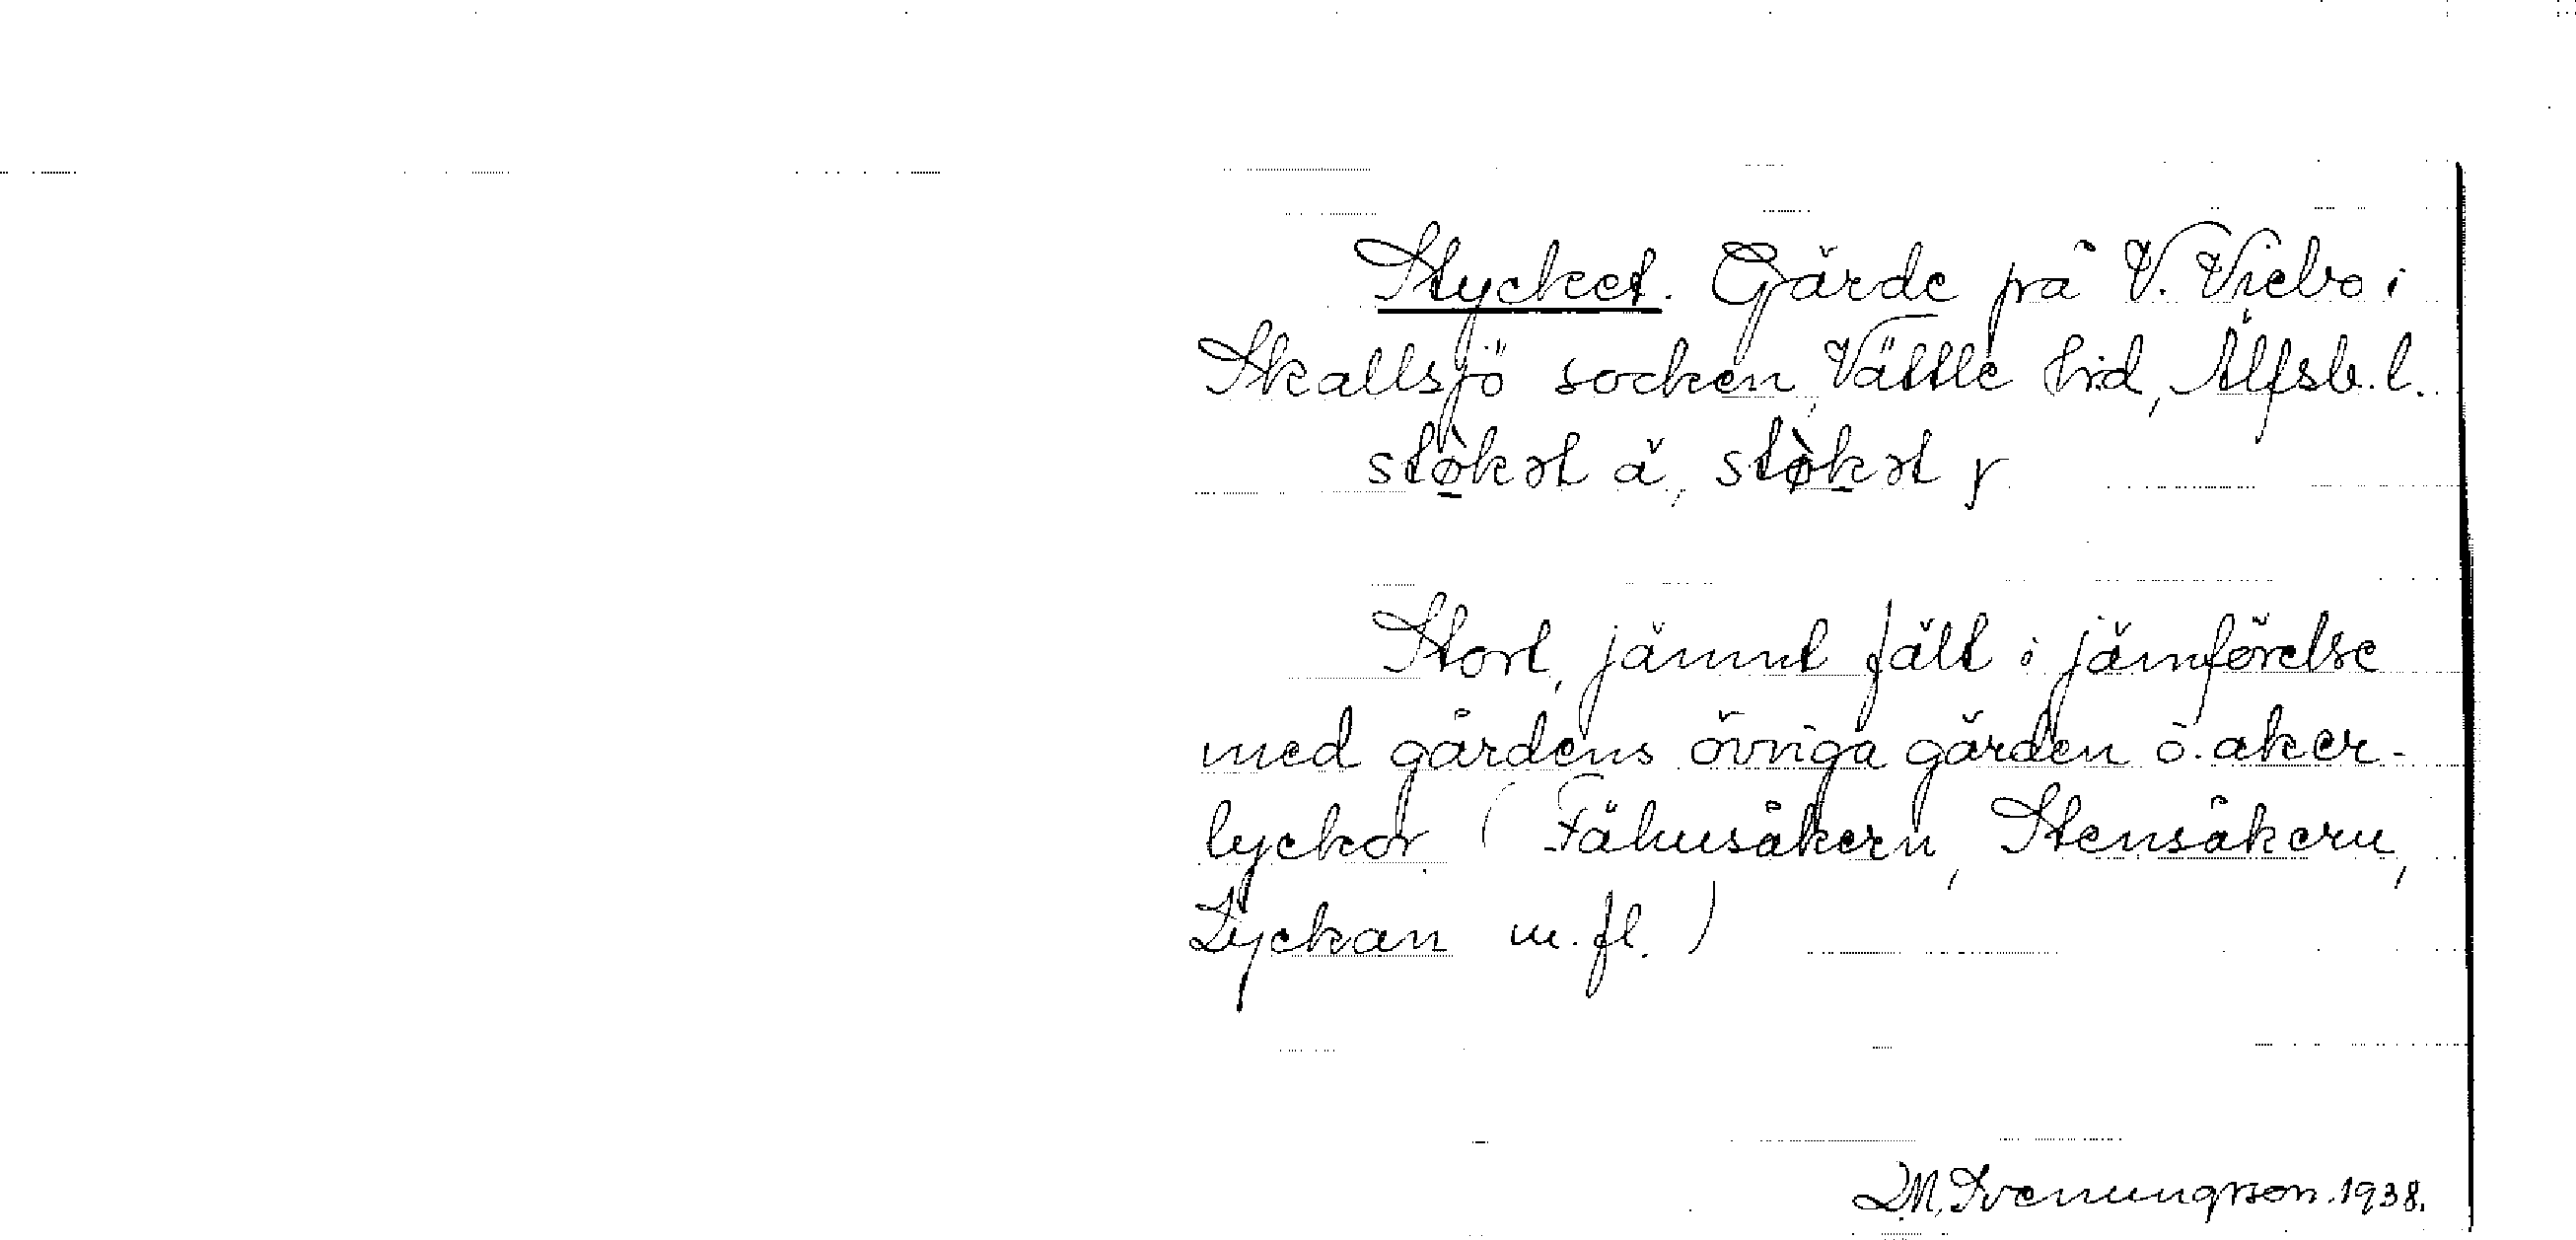 Stycket. Gärde på V. Viebo i
Skallsjö socken, Vättle hrd, Älfsb. l.
stø̀kət ä, stø̀kət γ
Stort, jämnt fält i jämförelse
med gårdens övriga gärden o. åker-
lyckor (Fähusåkern, Stensåkern,
Lyckan m. fl.)
D.M. Svenungsson. 1938.